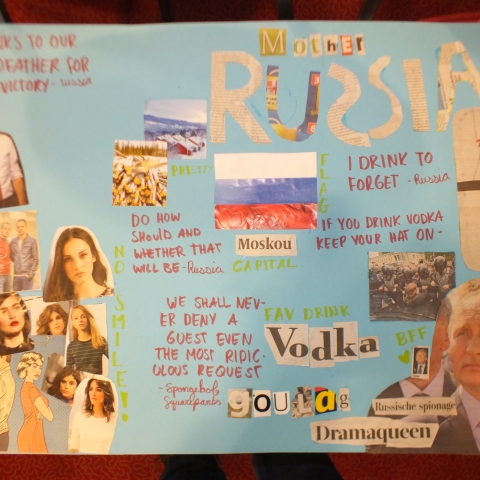 NKS TO OUR
FOR
VICTORY - Russia
Mother
RUSSIA
PRETTY
FLAG
I DRINK TO
FORGET - Russia
DO HOW
SHOULD AND
WHETHER THAT
WILL BE - Russia
Moskou
CAPITAL
IF YOU DRINK VODKA
KEEP YOUR HAT ON -
NO SMILE!
WE SHALL NEV-
ER DENY A
GUEST EVEN
THE MOST RIDIC-
ULOUS REQUEST
- Spongebob
Squarepants
FAV DRINK
Vodka
BFF
goulag
Russische spionage
Dramaqueen